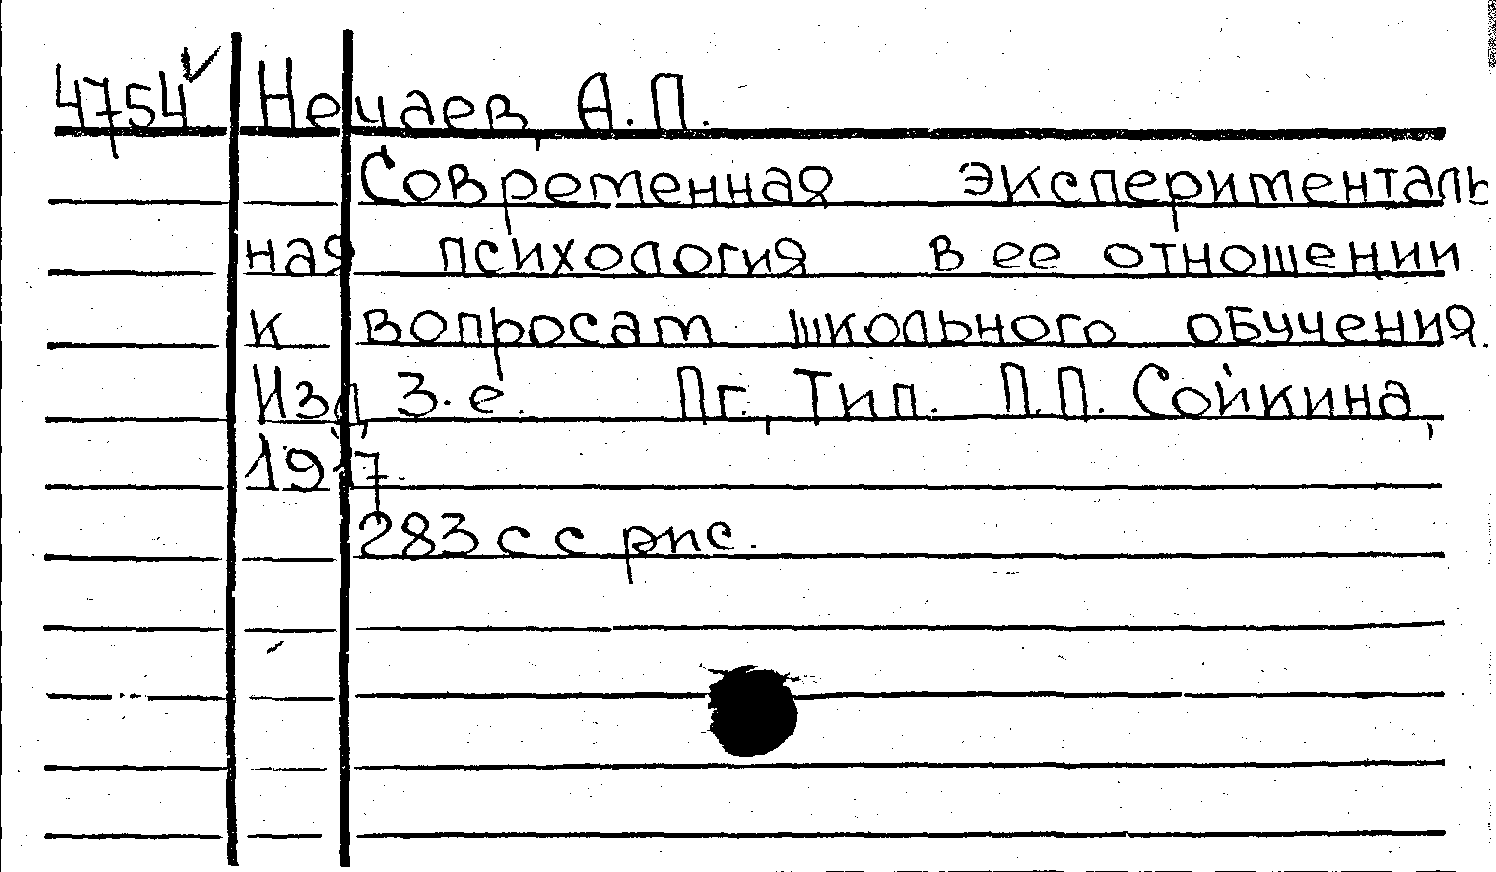 4754 Нечаев, А.П.
Современная эксперименталь
ная психология в ее отношении
к вопросам школьного обучения.
Изд. 3-е. Пг., Тип. П.П. Сойкина,
1917.
283 с с рис.